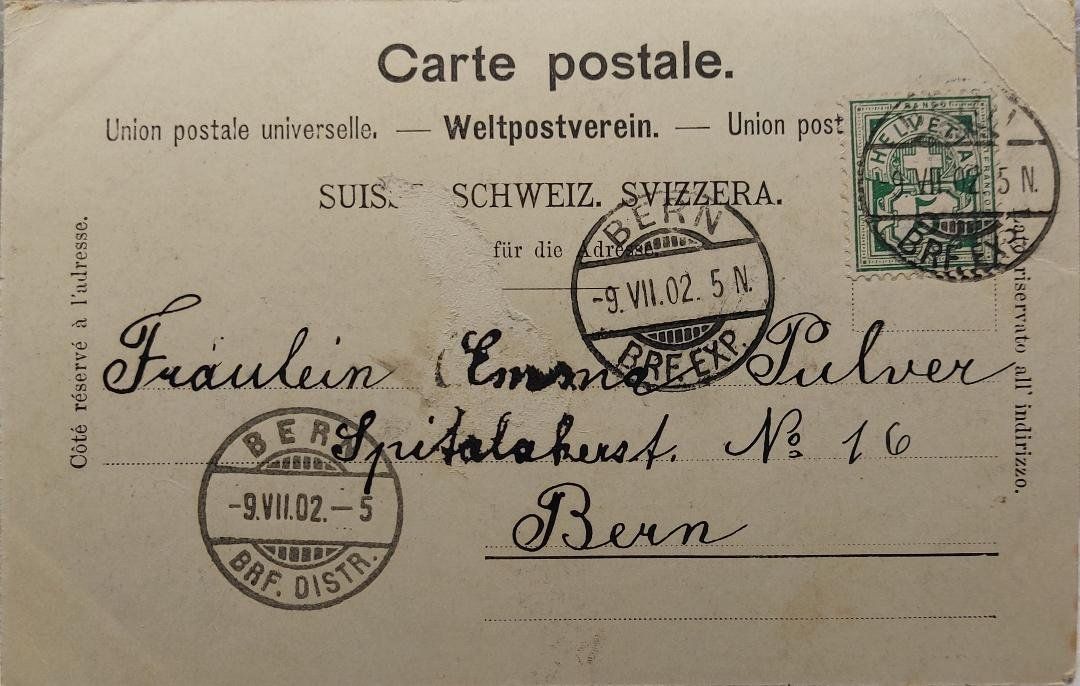 Carte postale.
Union postale universelle. — Weltpostverein. — Union post
SUIS SCHWEIZ. SVIZZERA.
für die Adresse.
Côté réservé à l'adresse.
Lato riservato all' indirizzo.
HELVETIA
9 VII 02. 5 N.
BRF. EXP.
BERN
-9. VII. 02. 5 N.
BRF. EXP.
Fräulein Emma Pulver
Spitalakerst. No 16
Bern
BERN
-9. VII. 02. – 5
BRF. DISTR.